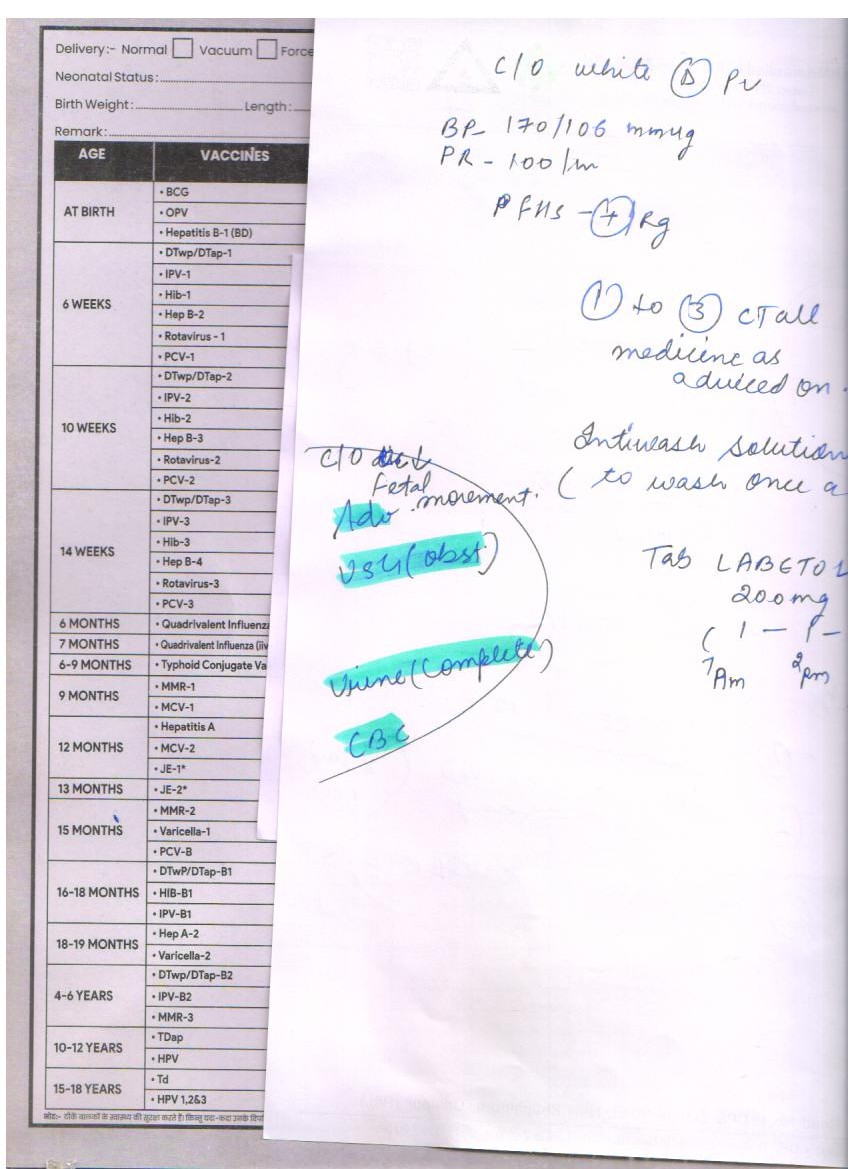 Delivery:- Normal Vacuum Force
Neonatal Status:
Birth Weight: Length:
Remark:
AGE VACCINES
AT BIRTH
• BCG
• OPV
• Hepatitis B-1 (BD)
6 WEEKS
• DTwp/DTap-1
• IPV-1
• Hib-1
• Hep B-2
• Rotavirus - 1
• PCV-1
10 WEEKS
• DTwp/DTap-2
• IPV-2
• Hib-2
• Hep B-3
• Rotavirus-2
• PCV-2
14 WEEKS
• DTwp/DTap-3
• IPV-3
• Hib-3
• Hep B-4
• Rotavirus-3
• PCV-3
6 MONTHS • Quadrivalent Influenza
7 MONTHS • Quadrivalent Influenza (iiv
6-9 MONTHS • Typhoid Conjugate Va
9 MONTHS
• MMR-1
• MCV-1
12 MONTHS
• Hepatitis A
• MCV-2
• JE-1*
13 MONTHS • JE-2*
15 MONTHS
• MMR-2
• Varicella-1
• PCV-B
16-18 MONTHS
• DTwP/DTap-B1
• HIB-B1
• IPV-B1
18-19 MONTHS
• Hep A-2
• Varicella-2
4-6 YEARS
• DTwp/DTap-B2
• IPV-B2
• MMR-3
10-12 YEARS
• TDap
• HPV
15-18 YEARS
• Td
• HPV 1,2&3
नोट:- टीके बालकों के स्वास्थ्य की सुरक्षा करते हैं। किन्तु यदा-कदा उनके
C/O white (D) PV
BP- 170/106 mmHg
PR - 100/m
FHS - (+) Rg
(1) to (3) CT all
medicine as
adviced on
Intiwash solution
( to wash once a
C/O
Fetal
movement.
Adv
USG (obst)
Urine (Complete)
CBC
Tab LABETOL
200mg
( 1 - 1 -
7Am 2pm